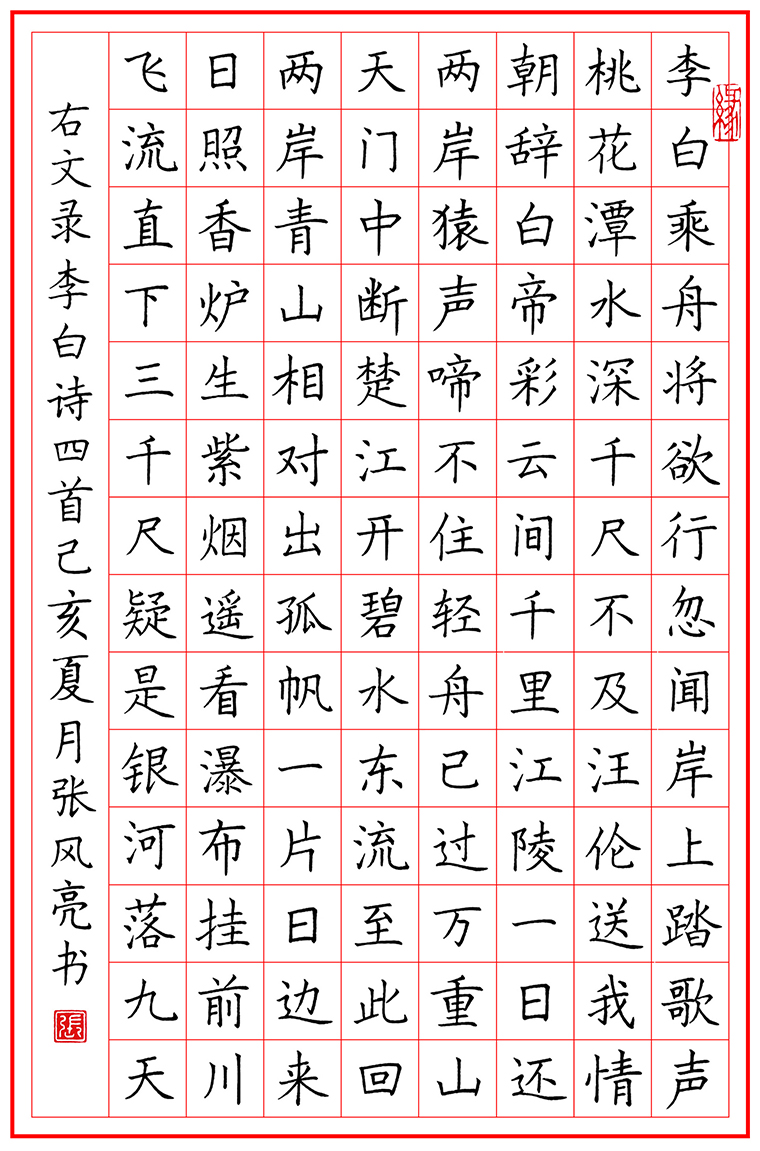 李白乘舟将欲行忽闻岸上踏歌声
桃花潭水深千尺不及汪伦送我情
朝辞白帝彩云间千里江陵一日还
两岸猿声啼不住轻舟已过万重山
天门中断楚江开碧水东流至此回
两岸青山相对出孤帆一片日边来
日照香炉生紫烟遥看瀑布挂前川
飞流直下三千尺疑是银河落九天
右文录李白诗四首己亥夏月张风亮书
張